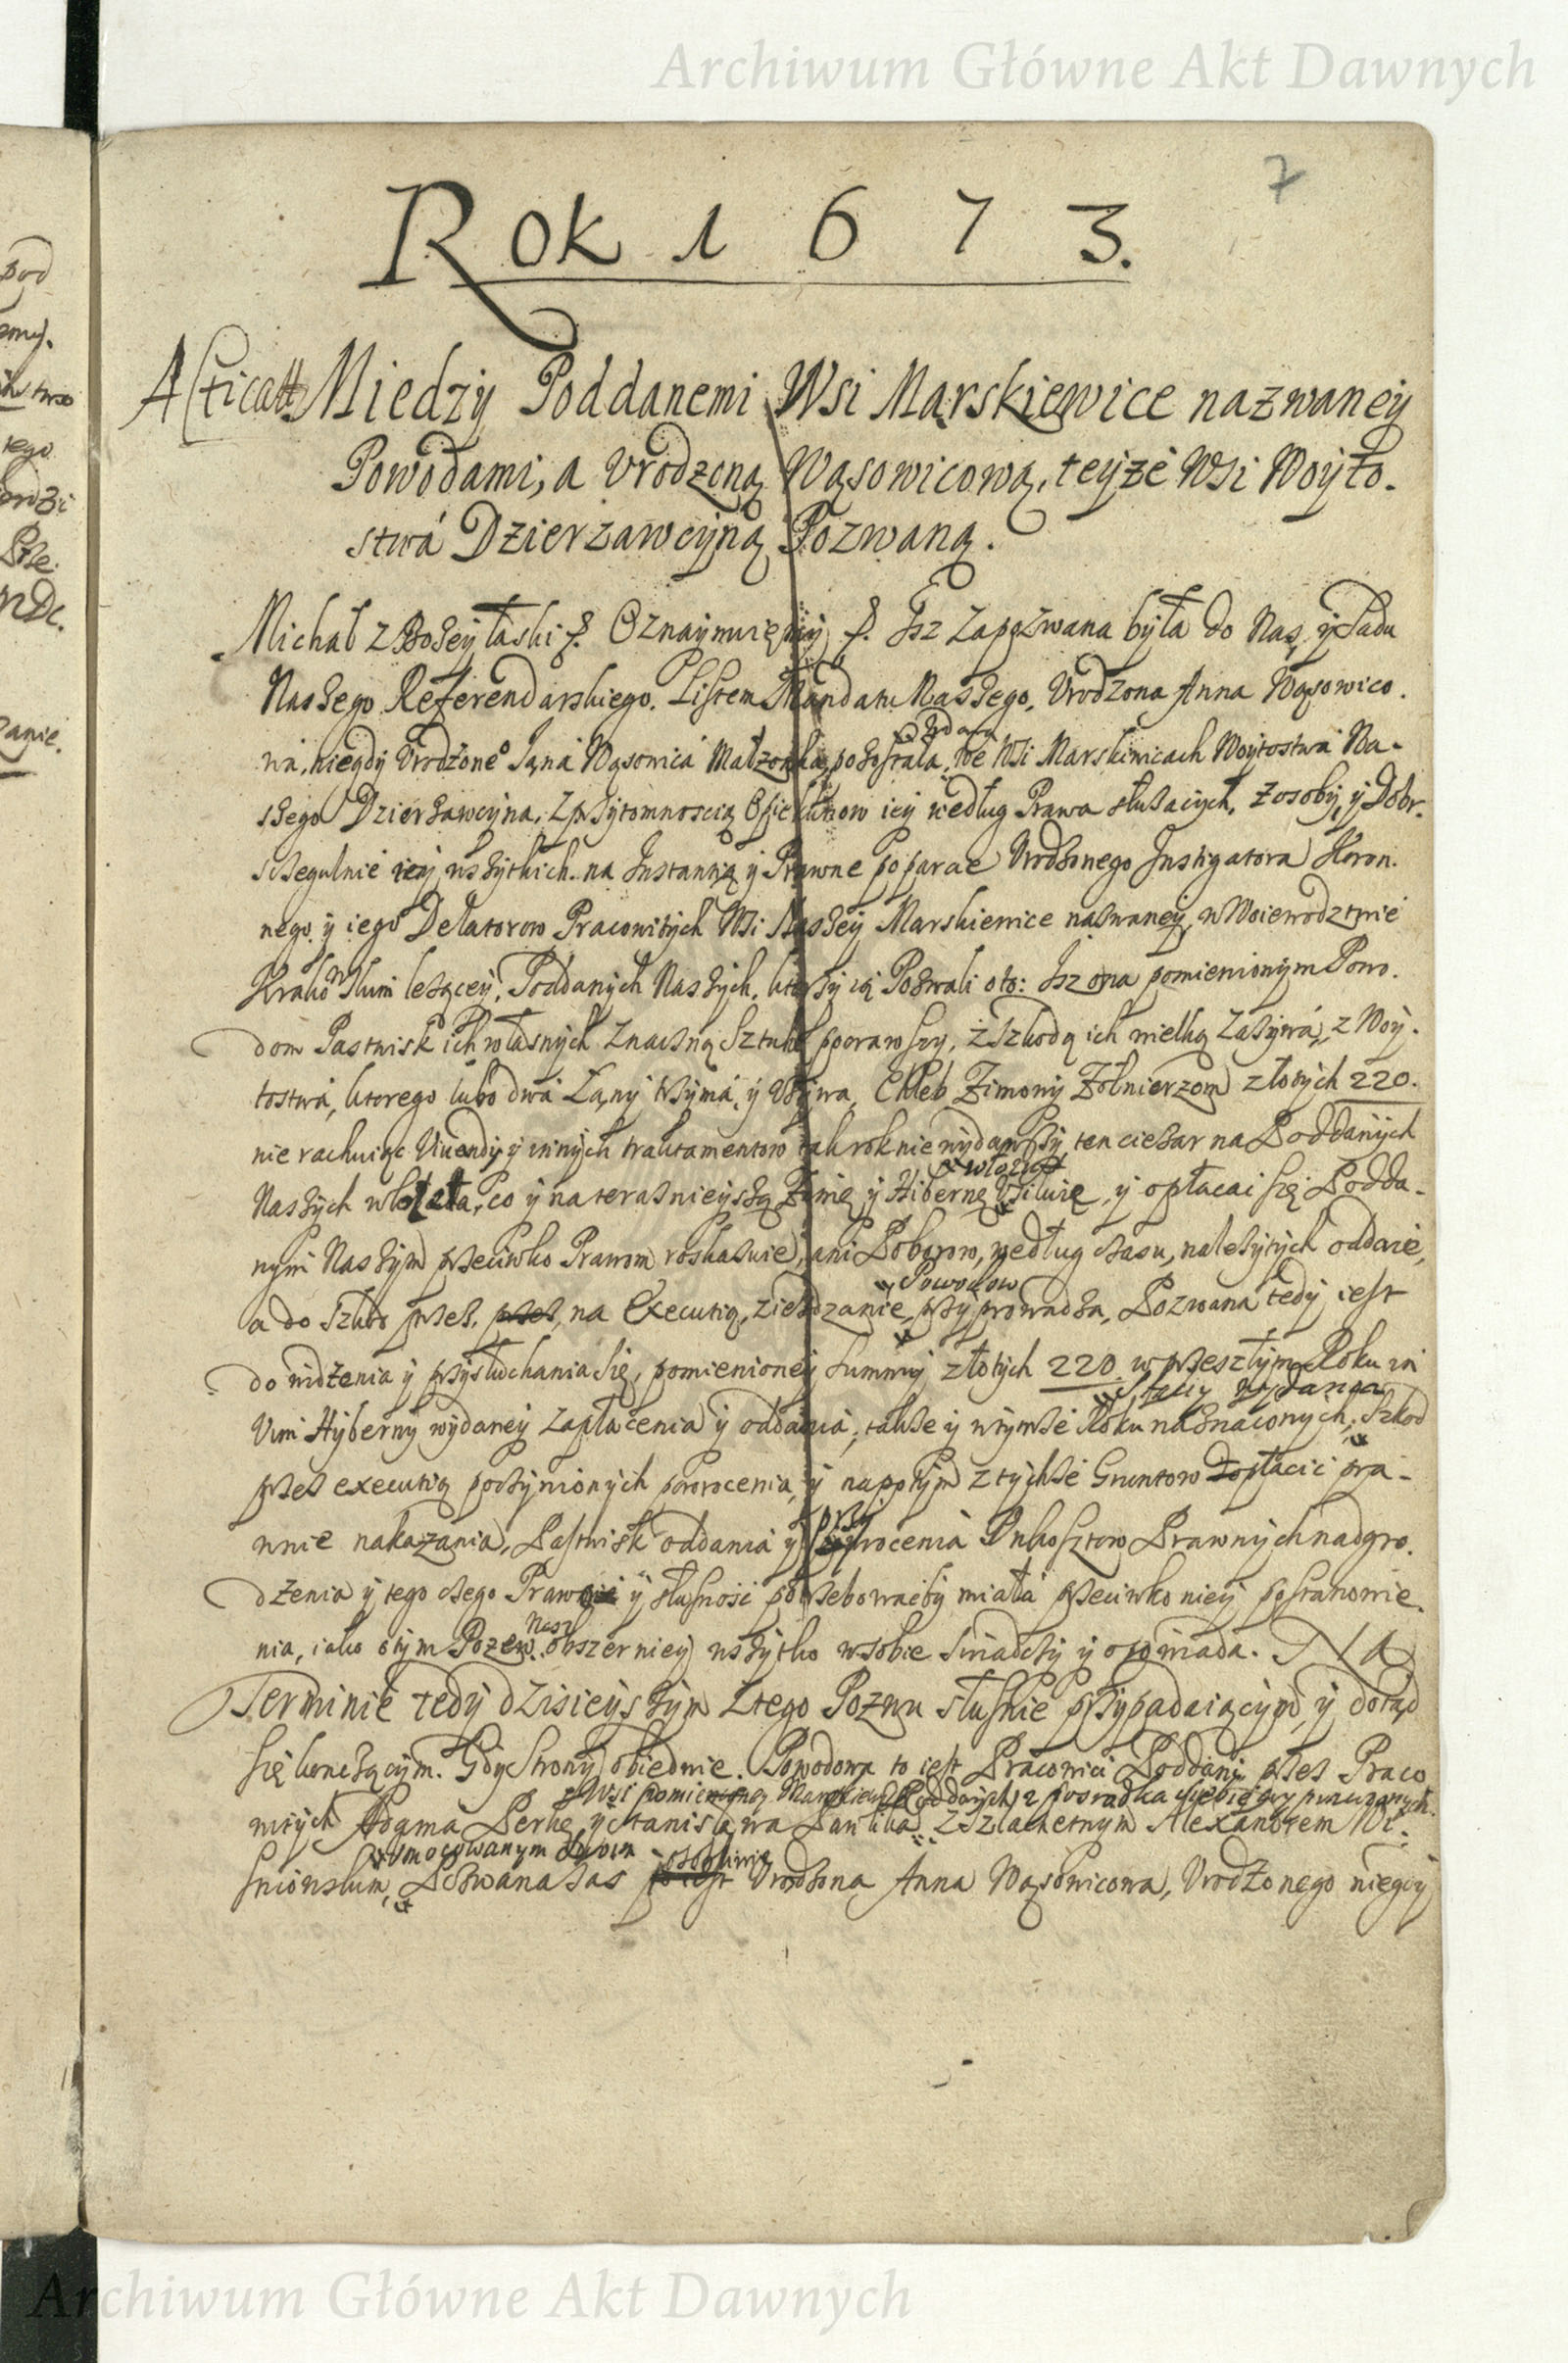 Archiwum Główne Akt Dawnych
7
Rok 1673.
Miedzy Poddanemi Wsi Marskiewice nazwaney
Powodami, a Vrodzoną Wąsowicową, teyże Wsi Woyto-
stwá Dzierzawcyną Pozwaną.
Michał z Bożey łaski Oznaymuięmy Isz Zapozwana była do Nas, y Sadu
Naszego Referendarskiego. Listem Mandatu Naszego, Vrodzona Anna Wąsowico-
wa, niegdy Vrodzone° Jąna Wąsowica Małzonka, pozostała wdowa, we Wsi Marskiewicach Woytostwa Na-
szego Dzierżawcyna, z przytomnoscią Opiekunow iey według Prawa słuzących, z osoby, y Dobr
szegulnie iey wszytkich na Instantią y Prawne poparcie Vrodzonego Instigatora Koron-
nego, y iego Delatorow Pracowitych Wsi Naszey Marskiewice nazwaney, w Woiewodztwie
Krakowskim lezącey, Poddanych Naszych, ktorzy ią Pozwali oto: Isz ona pomienionym Powo-
dom Pastwisk ich własnych znaczną Sztukę porawszy, z Szkodą ich wielką Zazywa, z Woy-
tostwá, ktorego lubo dwá Łąny trzyma, y Vzywa, Chleb Zimowy Zołnierzom złotych 220.
nie rachuiąc Viuendy y innych traktamentow tak rok nie wydawszy, ten ciezar na Poddanych
Naszych włozyła, co y na terasnieyszą Zimę y Hibernę włozyć Vsiłuię, y opłacac się Podda-
nym Naszym przeciwko Prawom roskazuie, ani Poborow, według czasu, nalezytych oddaie,
a do Szkod przez, na Executią, ziezdzanie, Powodow przyprowadza, Pozwana tedy iest
do widzenia y przysłuchania się, pomienioney Summy złotych 220. w przeszłym Roku
Vim Hyberny wydaney Zapłacenia y oddania, także y w tymże Roku naznaczonych, Szkod
przez executią poczynionych powrocenia, y napotym z tychże Gruntow płacić pra-
wnie nakazania, Pastwisk oddania y przywrocenia Vnkosztow Prawnych nadgro-
dzenia y tego czego Prawo y słusność potrzebowaćby miała przeciwko niey postanowie-
nia, iako o tym Pozew Nasz obszerniey wszytko w sobie Swiadczy y opowiada. Na
Terminie tedy dzisieyszym z tego Pozwu słusnie przypadaiącym, y dotąd
się toczącym. Gdy Strony obiedwie. Powodowa to iest Pracowici Poddani przez Praco-
z Wsi pomienioney Poddanych z posrodka siebie
witych Adama Perkę, y Stanisława Pawlika z Szlachetnym Alexandrem Wi-
śniowskim, umocowanym swoim Pozwana zas osobiscie Vrodzona Anna Wąsowicowa, Vrodzonego niegdy
Archiwum Główne Akt Dawnych